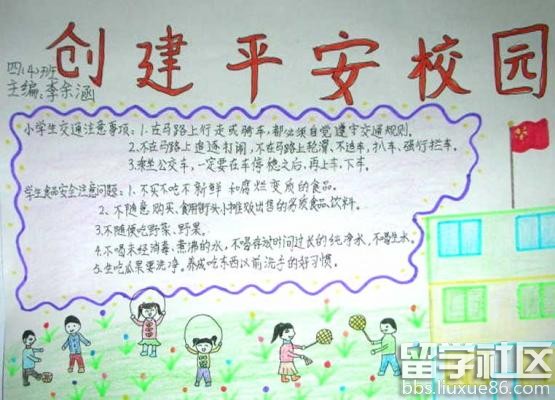 创建平安校园
四(4)班
主编:李余涵
小学生交通注意事项:1.在马路上行走或骑车,都必须自觉遵守交通规则。
2.不在马路上追逐打闹,不在马路上轮滑,不追车,扒车、强行拦车。
3.乘坐公交车,一定要在车停稳之后,再上车、下车。
学生食品安全注意问题:1.不买不吃不新鲜和腐烂变质的食品。
2、不随意购买、食用街头小摊贩出售的劣质食品、饮料。
3.不随便吃野菜、野果。
4.不喝未经消毒、煮沸的水,不喝存放时间过长的纯净水,不喝生水。
5.生吃瓜果要洗净。养成吃东西以前洗手的好习惯。
留学社区
bbs.liuxue86.com